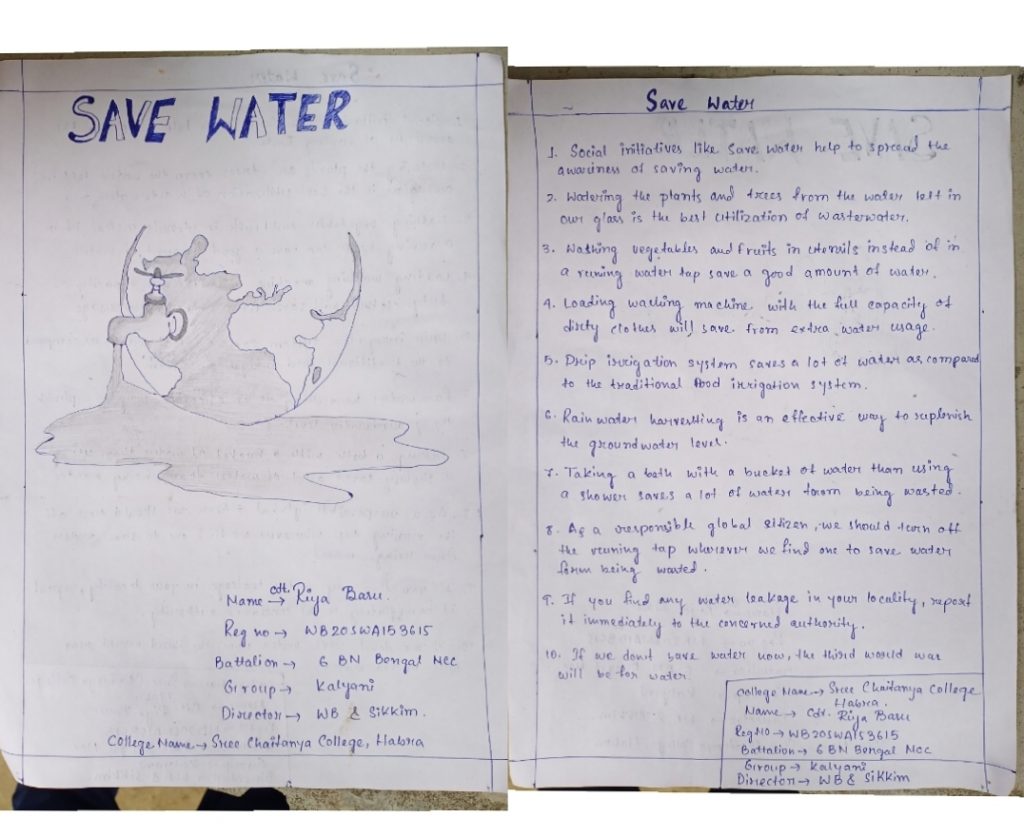 SAVE WATER
Name → cdt. Riya Baru.
Reg no → WB20SWA153615
Battalion → 6 BN Bengal Ncc
Group → Kalyani
Director → WB & Sikkim.
College Name → Sree Chaitanya College, Habra
Save Water
1. Social initiatives like save water help to spread the
awariness of saving water.
2. Watering the plants and trees from the water left in
our glass is the best utilization of wasterwater.
3. Washing vegetables and fruits in utensils instead of in
a runing water tap save a good amount of water.
4. Loading waching machine with the full capacity of
dirty clothes will save from extra water usage.
5. Drip irrigation system saves a lot of water as compared
to the traditional flood irrigation system.
6. Rain water harvestting is an effective way to replenish
the groundwater level.
7. Taking a bath with a bucket of water than using
a shower saves a lot of water from being wasted.
8. As a responsible global sitizen, we should turn off
the runing tap wherever we find one to save water
form being wasted.
9. If you find any water leakage in your locality, report
it immediately to the concerned authority.
10. If we don't save water now, the third would war
will be for water.
College Name → Sree Chaitanya College
Habra.
Name → Cdt. Riya Baru
Reg NO → WB20SWA153615
Battalion → 6 BN Bengal Ncc
Group → Kalyani
Director → WB & Sikkim